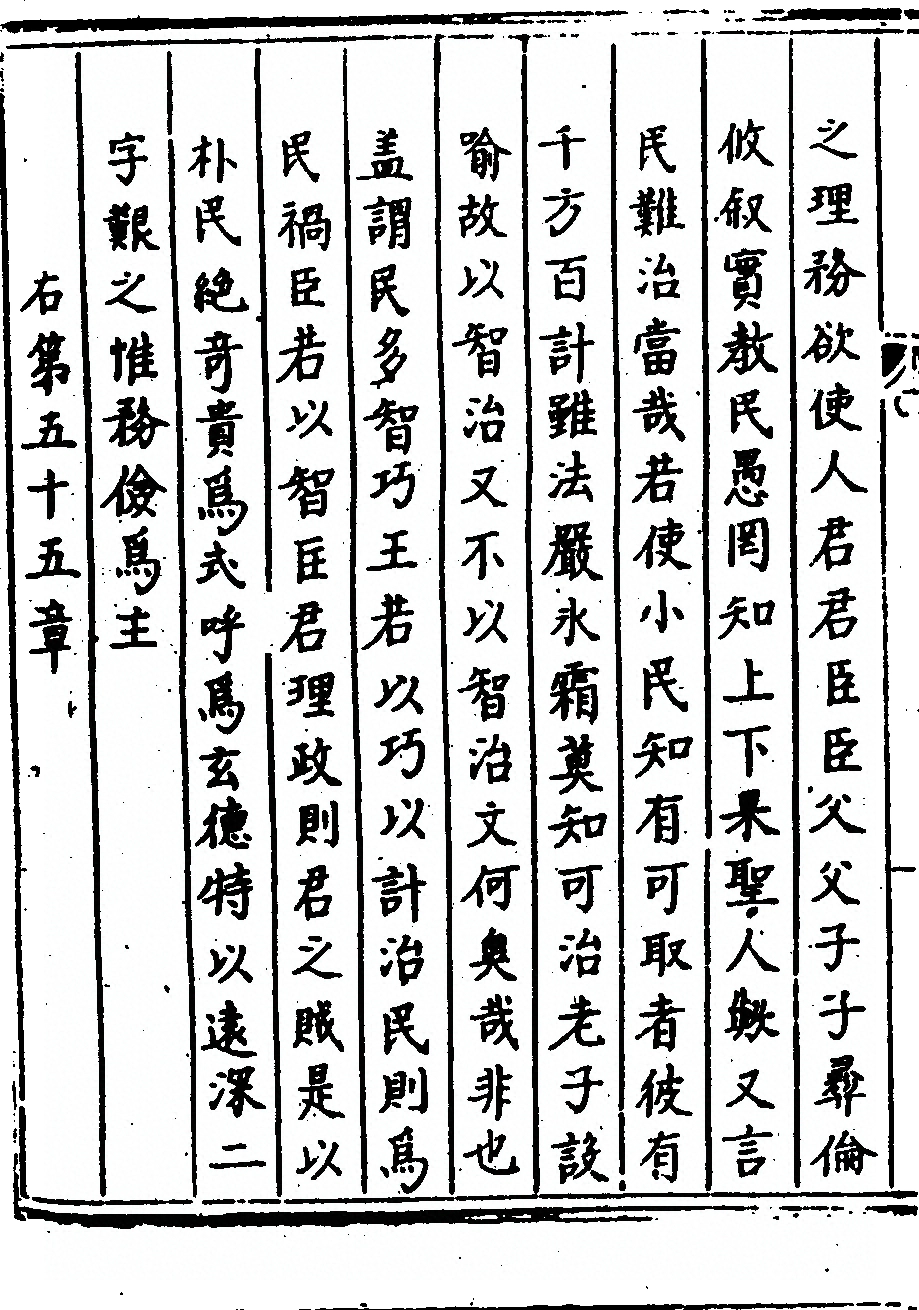 之理務欲使人君君臣臣父父子子彞倫
攸叙實教民愚罔知上下果聖人歟又言
民難治當哉若使小民知有可取者彼有
千方百計雖法嚴氷霜莫知可治老子設
喻故以智治又不以智治文何奥哉非也
盖謂民多智巧王若以巧以計治民則爲
民禍臣若以智臣君理政則君之賊是以
朴民絶竒貴爲式呼爲玄德特以遠深二
字艱之惟務儉爲主
右第五十五章